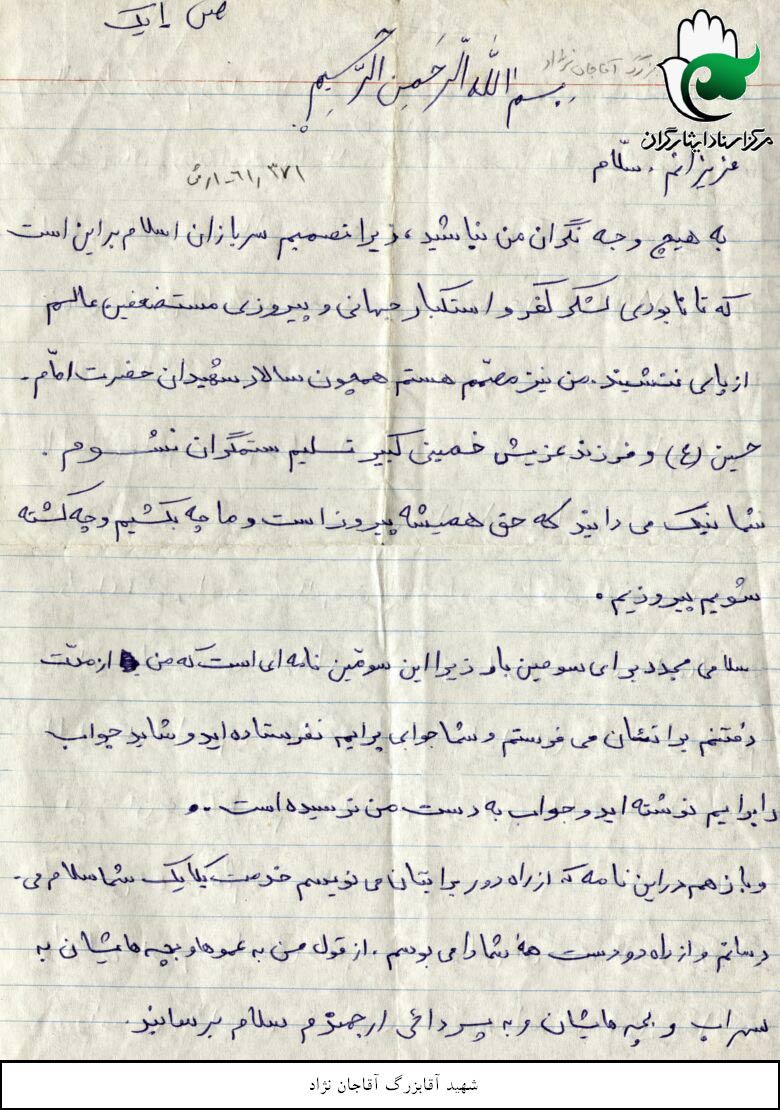 ص یک
بزرگ آقاجان نژاد
بسم الله الرحمن الرحیم
مرکز اسناد ایثارگران
عزیزانم، سلام
به هیچ وجه نگران من نباشید، زیرا تصمیم سربازان اسلام براین است
که تا نابودی لشکر کفر و استکبار جهانی و پیروزی مستضعفین عالم
از پای ننشینند. من نیز مصمّم هستم همچون سالار شهیدان حضرت امّام
حسین (ع) و فرزند عزیش خمینی کبیر تسلیم ستمگران نشوم.
شما نیک می دانید که حق همیشه پیروز است و ما چه بکشیم و چه کشته
شویم پیروزیم.
سلامی مجدد برای سومین بار زیرا این سومّین نامه ای است که من از مدّت
رفتنم براتتان می فرستم و شما جوابی برایم نفرستاده اید و شاید جواب
را برایم نوشته اید و جواب به دست من نرسیده است.
و باز هم در این نامه که از راه دور برایتان می نویسم خدمت یکایک شما سلام می
رسانم و از راه دور دست همهٔ شما را می بوسم، از قول من به عموها و بچه هایشان به
سهراب و بچه هایشان و به پسر دائی ارجمندم سلام برسانید.
شهید آقابزرگ آقاجان نژاد